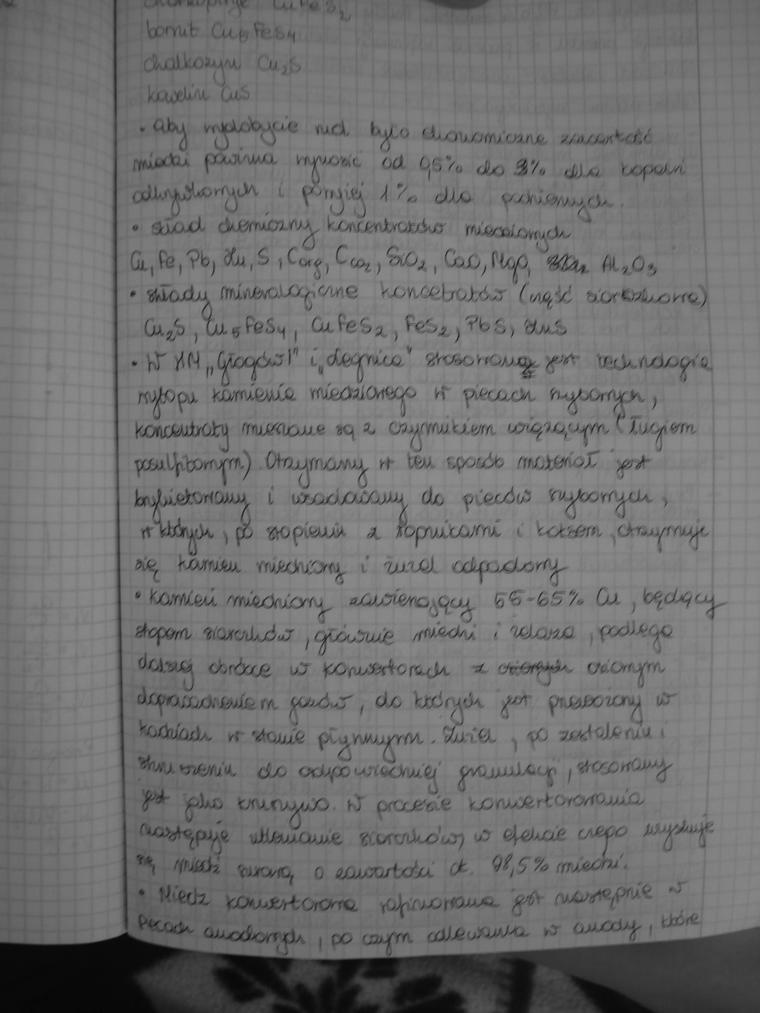 chalkopiryt CuFeS2
bornit Cu5FeS4
chalkozyn Cu2S
kowelin CuS
• aby wydobycie rud było ekonomiczne zawartość
miedzi powinna wynosić od 0,5% do 3% dla kopalń
odkrywkowych i powyżej 1% dla podziemnych.
• skład chemiczny koncentratów miedzionych
Cu, Fe, Pb, Zn, S, Corg, CCO2, SiO2, CaO, MgO, Al2O3
• składy mineralogiczne koncetratów (część siarczkowa)
Cu2S, Cu5FeS4, CuFeS2, FeS2, PbS, ZnS
• W HM „Głogów I" i „Legnica" stosowana jest technologia
wytopu kamienia miedzionego w piecach szybowych,
koncentraty mieszane są z czynnikiem wiążącym (ługiem
posulfitowym) Otrzymany w ten sposób materiał jest
brykietowany i wsadowany do pieców szybowych,
w których, po stopieniu z topnikami i koksem, otrzymuje
się kamień miedziowy i żużel odpadowy
• Kamień miedziowy zawierający 55-65% Cu, będący
stopem siarczków, głównie miedzi i żelaza, podlega
dalszej obróbce w konwertorach z osiowym
doprowadzeniem gazów, do których jest przewożony w
kadziach w stanie płynnym. Żużel, po zestaleniu i
kruszeniu do odpowiedniej granulacji, stosowany
jest jako kruszywo. W procesie konwertorowania
następuje utlenianie siarczków, w efekcie czego uzyskuje
się miedź surową o zawartości ok. 98,5% miedzi.
• Miedź konwertorowa rafinowana jest następnie w
piecach anodowych, po czym odlewana w anody, które